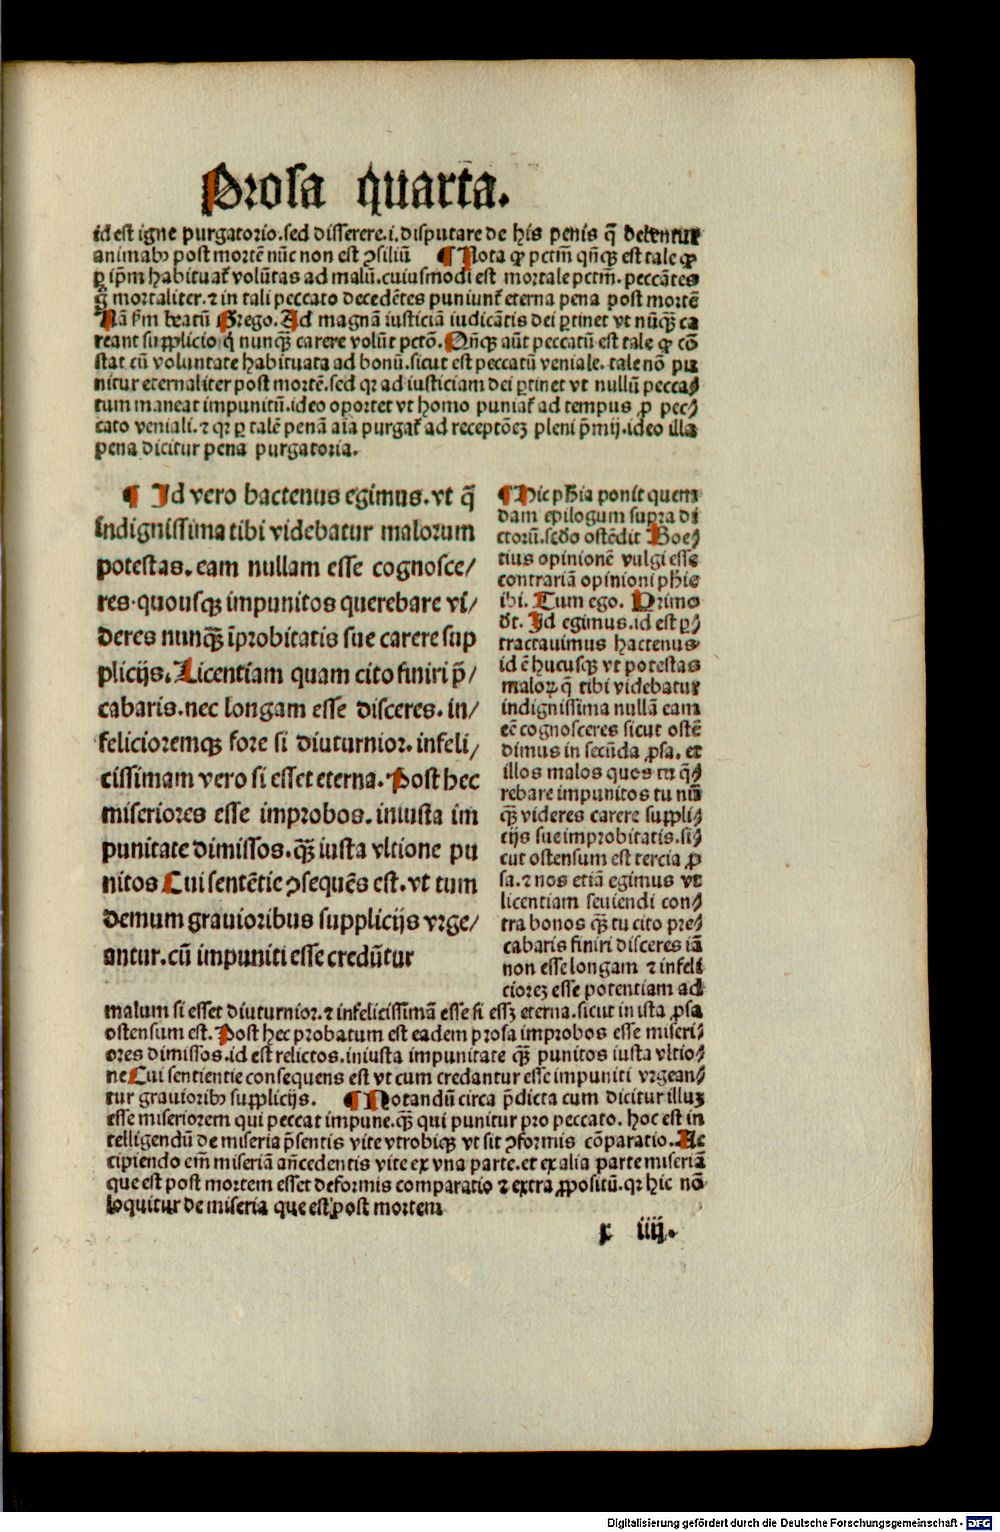 Prosa quarta.
id est igne purgatorio.sed disserere.i.disputare de his penis q̃ detentur
animabꝰ post mortẽ nũc non est ꝯsiliũ ¶ Nota ꝙ pctm̃ qñcꝗ est tale ꝙ
ꝑ ip̃m habituat᷑ volũtas ad malũ.cuiusmodi est mortale pctm̃.peccãtes
g̃ mortaliter.⁊ in tali peccato decedẽtes puniunt᷑ eterna pena post mortẽ
Nã ẜm beatũ Grego.Ad magnã iusticiã iudicãtis dei ꝑtinet vt nũꝙ̃ ca
reant supplicio q̇ nunꝙ̃ carere volũt pctõ.Qñcꝗ aũt peccatũ est tale ꝙ cõ
stat cũ voluntate habituata ad bonũ.sicut est peccatũ veniale.tale nõ pu
nitur eternaliter post mortẽ.sed qꝛ ad iusticiam dei ꝑtinet vt nullũ pecca⸗
tum maneat impunitũ.ideo oportet vt homo puniat᷑ ad tempus ꝓ pec⸗
cato veniali.⁊ qꝛ ꝑ talẽ penã aĩa purgat᷑ ad receptõeꝫ pleni p̃mij.ideo illa
pena dicitur pena purgatoria.
¶ Id vero hactenus egimus.vt q̃
indignissima tibi videbatur malorum
potestas.eam nullam esse cognosce/
res.quousꝗ impunitos querebare vi/
deres nunꝙ̃ ĩprobitatis sue carere sup
plicijs.Licentiam quam cito finiri p̃/
cabaris.nec longam esse disceres.in/
felicioremꝗ fore si diuturnior.infeli/
cissimam vero si esset eterna.Post hec
miseriores esse improbos.iniusta im
punitate dimissos.ꝙ̃ iusta vltione pu
nitos Cui sentẽtie ꝯsequẽs est.vt tum
demum grauioribus supplicijs vrge/
antur.cũ impuniti esse credũtur
¶ Hic phĩa ponit quen
dam epilogum supra di
ctorũ.scd̃o ostẽdit Boe⸗
tius opinionẽ vulgi esse
contrariã opinioni phĩe
ibi.Tum ego. Primo
dt̃.Id egimus.id est ꝑ⸗
tractauimus hactenus
id ẽ hucusꝗ vt potestas
maloꝝ q̃ tibi videbatur
indignissima nullã eam
eẽ cognosceres sicut ostẽ
dimus in secũda ꝓsa.et
illos malos quos tu q̃⸗
rebare impunitos tu nũ
ꝙ̃ videres carere suppli⸗
cijs sue improbitatis.si⸗
cut ostensum est tercia ꝓ
sa.⁊ nos etiã egimus vt
licentiam seuiendi con⸗
tra bonos ꝙ̃ tu cito pre⸗
cabaris finiri disceres iã
non esse longam ⁊ infeli
cioreꝫ esse potentiam ad
malum si esset diuturnior.⁊ infelicissimã esse si essꝫ eterna.sicut in ista ꝓsa
ostensum est.Post hec probatum est eadem prosa improbos esse miseri⸗
ores dimissos.id est relictos.iniusta impunitate ꝙ̃ punitos iusta vltio⸗
ne Cui sentientie consequens est vt cum credantur esse impuniti vrgean⸗
tur grauioribꝰ supplicijs. ¶ Notandũ circa p̃dicta cum dicitur illuꝫ
esse miseriorem qui peccat impune.ꝙ̃ qui punitur pro peccato.hoc est in
telligendũ de miseria p̃sentis vite vtrobiꝗ vt sit ꝯformis cõparatio.Ac
cipiendo em̃ miseriã añcedentis vite ex vna parte.et ex alia parte miseriã
que est post mortem esset deformis comparatio ⁊ extra ꝓpositũ.qꝛ hic nõ
loquitur de miseria que est post mortem
r iiij.
Digitalisierung gefördert durch die Deutsche Forschungsgemeinschaft - DFG